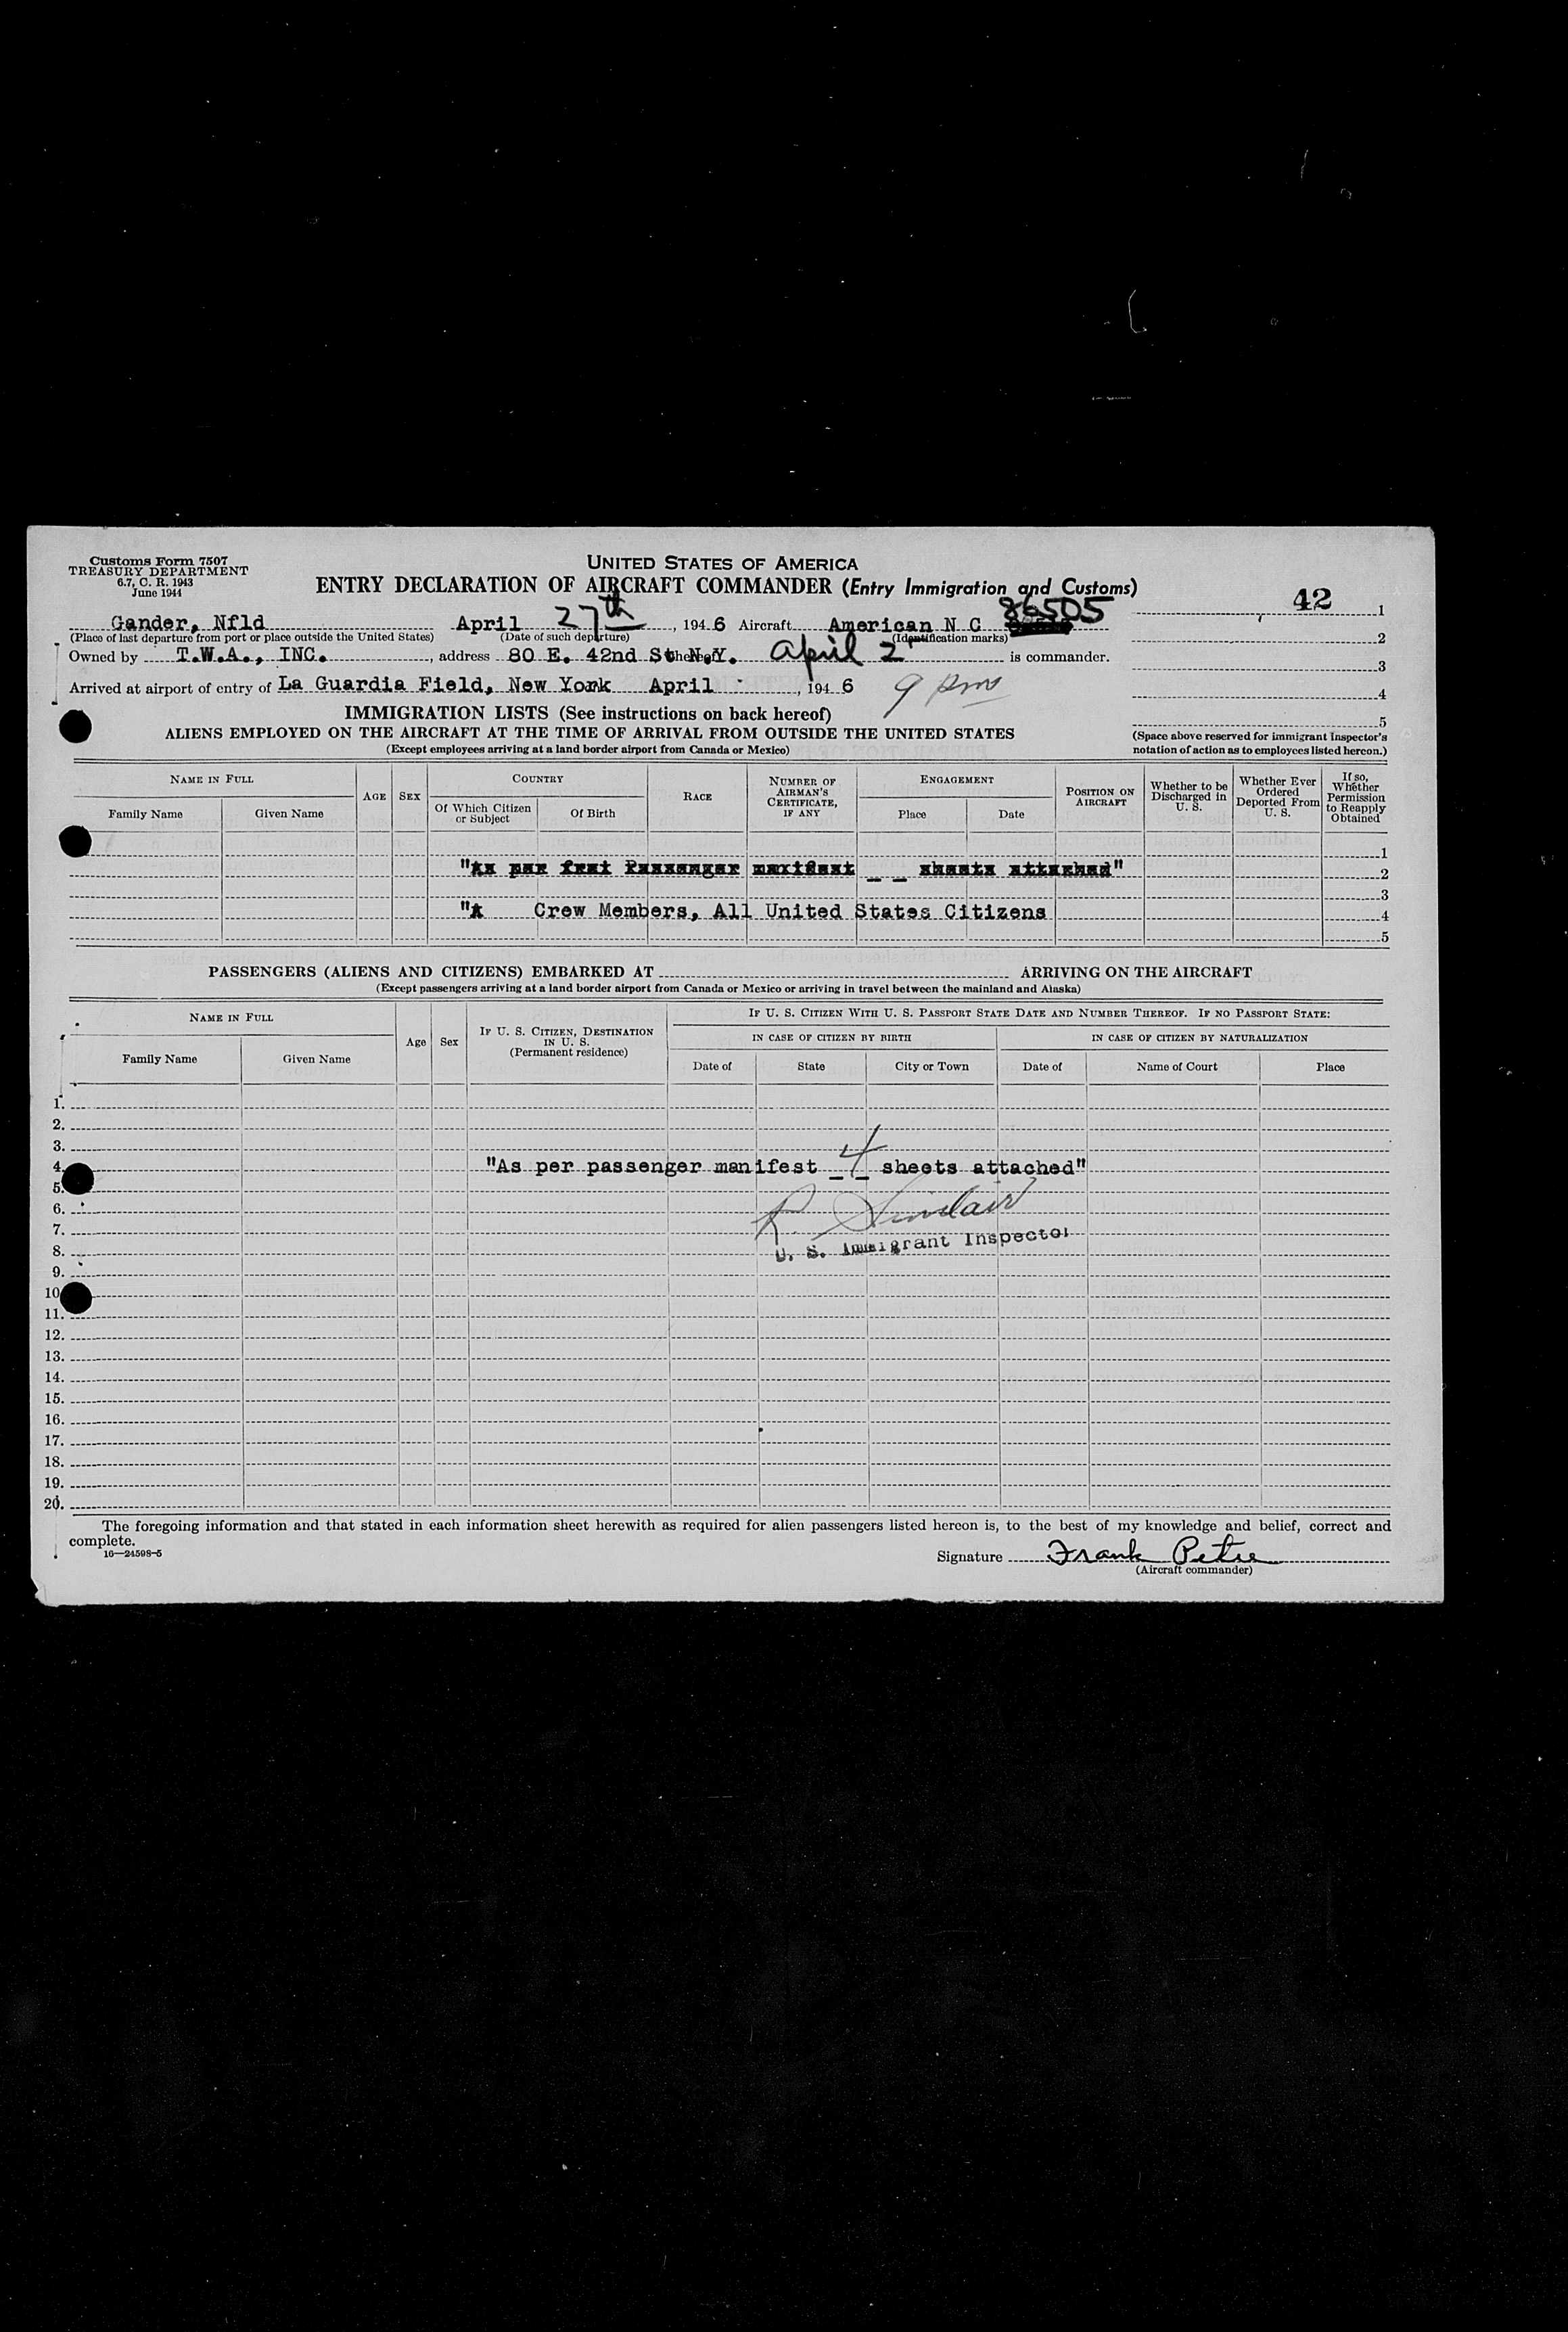 Customs Form 7507
TREASURY DEPARTMENT
6.7, C. R. 1943
June 1944
UNITED STATES OF AMERICA
ENTRY DECLARATION OF AIRCRAFT COMMANDER (Entry Immigration and Customs)
42 1
2
3
4
5
Gander, Nfld April 27th, 194 6 Aircraft American N C 86505
(Place of last departure from port or place outside the United States) (Date of such departure) (Identification marks)
Owned by T.W.A., INC., address 80 E. 42nd St N.Y. April 2 is commander.
Arrived at airport of entry of La Guardia Field, New York April, 194 6 9 pm
IMMIGRATION LISTS (See instructions on back hereof)
ALIENS EMPLOYED ON THE AIRCRAFT AT THE TIME OF ARRIVAL FROM OUTSIDE THE UNITED STATES
(Except employees arriving at a land border airport from Canada or Mexico)
(Space above reserved for immigrant Inspector's
notation of action as to employees listed hereon.)
NAME IN FULL
Family Name Given Name
AGE SEX
COUNTRY
Of Which Citizen or Subject
Of Birth
RACE
NUMBER OF AIRMAN'S CERTIFICATE, IF ANY
ENGAGEMENT
Place Date
POSITION ON AIRCRAFT
Whether to be Discharged in U. S.
Whether Ever Ordered Deported From U. S.
If so, Whether Permission to Reapply Obtained
1
2
3
"A Crew Members, All United States Citizens 4
5
PASSENGERS (ALIENS AND CITIZENS) EMBARKED AT ARRIVING ON THE AIRCRAFT
(Except passengers arriving at a land border airport from Canada or Mexico or arriving in travel between the mainland and Alaska)
NAME IN FULL
Family Name Given Name
Age Sex
IF U. S. CITIZEN, DESTINATION IN U. S.
(Permanent residence)
IF U. S. CITIZEN WITH U. S. PASSPORT STATE DATE AND NUMBER THEREOF. IF NO PASSPORT STATE:
IN CASE OF CITIZEN BY BIRTH IN CASE OF CITIZEN BY NATURALIZATION
Date of State City or Town Date of Name of Court Place
1.
2.
3.
4. "As per passenger manifest 4 sheets attached"
5.
6. R. Sinclair
7.
8. U. S. Immigrant Inspector
9.
10.
11.
12.
13.
14.
15.
16.
17.
18.
19.
20.
The foregoing information and that stated in each information sheet herewith as required for alien passengers listed hereon is, to the best of my knowledge and belief, correct and
complete.
16—24598-5
Signature Frank Petee
(Aircraft commander)